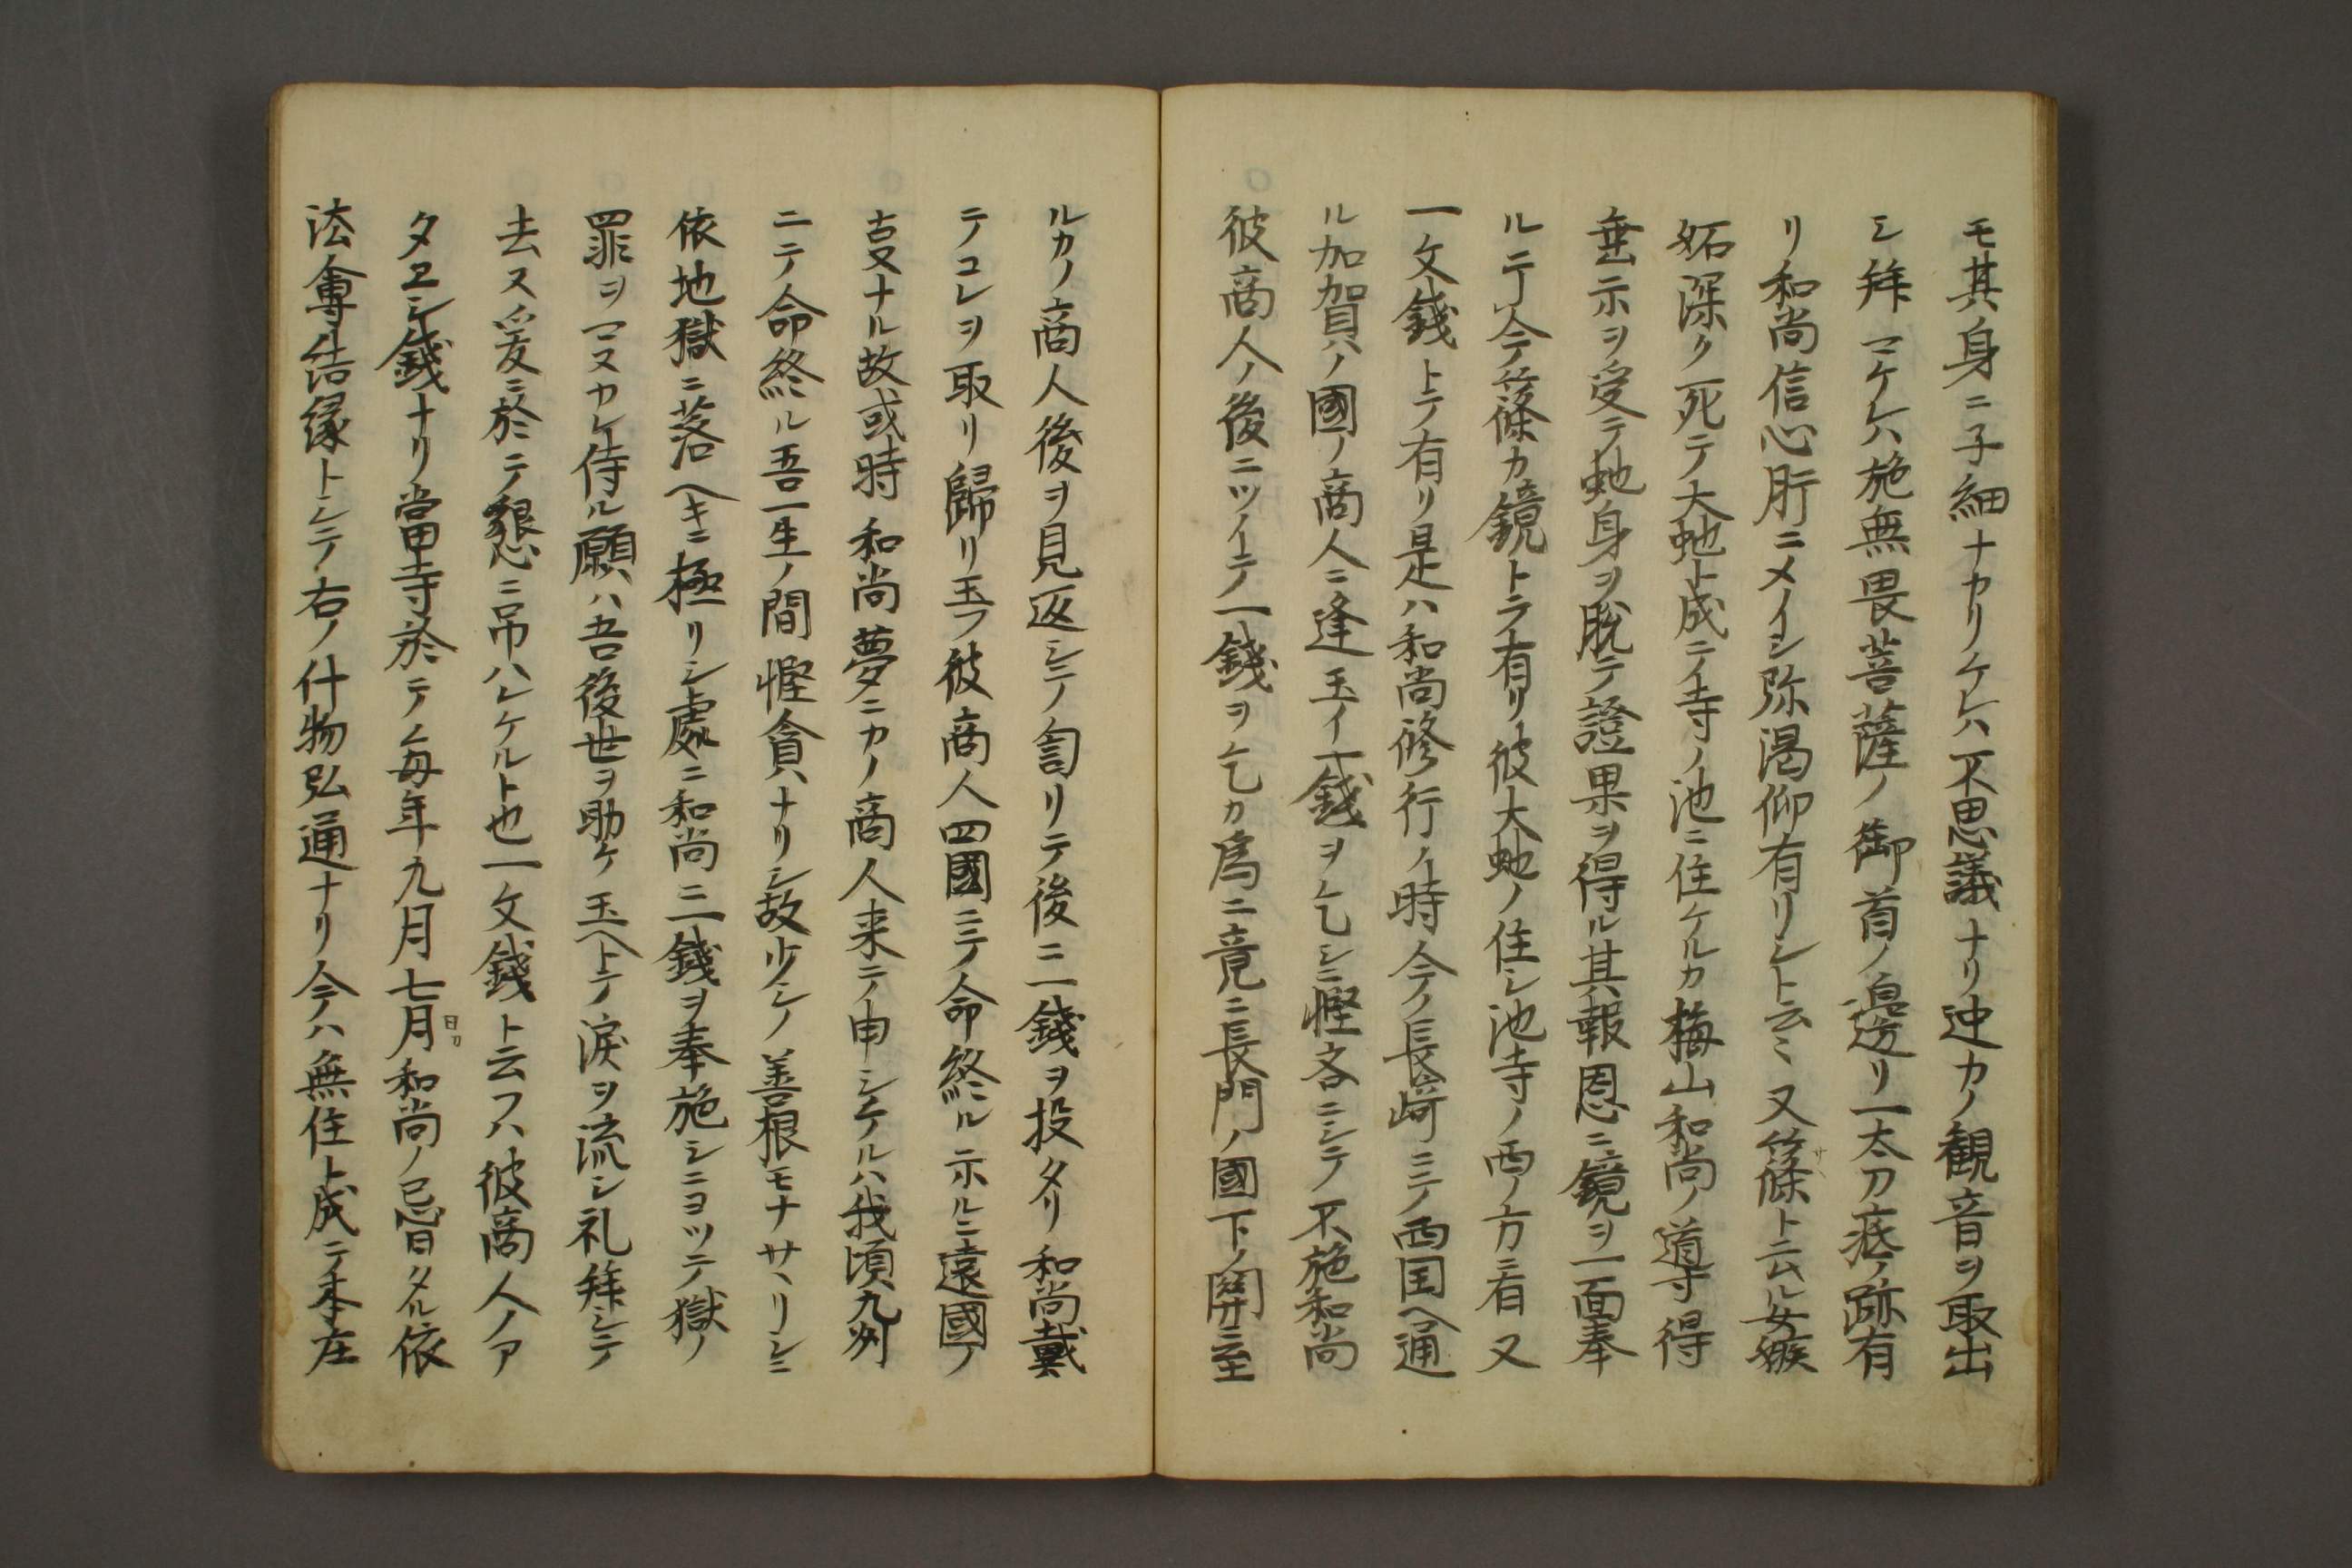 モ其ノ身ニ子細ナカリケレハ不思議ナリ迚カノ観音ヲ取出
シ拜マケレハ施無畏菩薩ノ御首ノ邉リ一太刀疵ノ跡有
リ和尚信心肝ニメイシ弥渇仰有リシト云ミ又篠ト云ル女嫉
妬深ク死テ大虵ト成テ寺ノ池ニ住ケルカ梅山和尚ノ導得
垂示ヲ受テ虵身ヲ脱テ證果ヲ得ル其報恩ニ鏡ヲ一面奉
ル于今篠カ鏡トテ有リ彼大虵ノ住シ池寺ノ西ノ方ニ有又
一文錢トテ有リ是ハ和尚修行ノ時今ノ長﨑ニテ西国ヘ通
ル加賀ノ國ノ商人ニ逢玉イ一錢ヲ乞シニ慳吝ニシテ不施和尚
彼商人ノ後ニツイテ一錢ヲ乞カ爲ニ竟ニ長門ノ國下ノ関ニ至
ルカノ商人後ヲ見返シテ訇リテ後ニ一錢ヲ投タリ和尚戴
テコレヲ取リ歸リ玉フ彼商人四國ニテ命終ル尓ルニ遠國ノ
叓ナル故或時和尚夢ニカノ商人来テ申シケルハ我頃九州
ニテ命終ル吾一生ノ間慳貪ナリシ故少シノ善根モナサヽリシニ
依地獄ニ落ヘキニ極リシ處ニ和尚ニ一錢ヲ奉施シニヨツテ獄ノ
罪ヲマヌカレ侍ル願ハ吾後世ヲ助ケ玉ヘトテ涙ヲ流シ礼拜シテ
去ヌ爰ニ於テ懇ニ吊ハレケルト也一文錢ト云フハ彼商人ノア
タヱシ錢ナリ當寺於テノ毎年九月七月日カ和尚ノ忌日タル依
法會結縁トシテ右ノ什物弘通ナリ今ハ無住ト成テ本庄